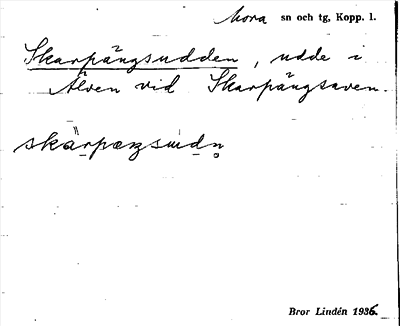 Mora sn och tg, Kopp. l.
Skarpängsudden, udde i
Älven vid Skarpängsaven.
Bror Lindén 1936.